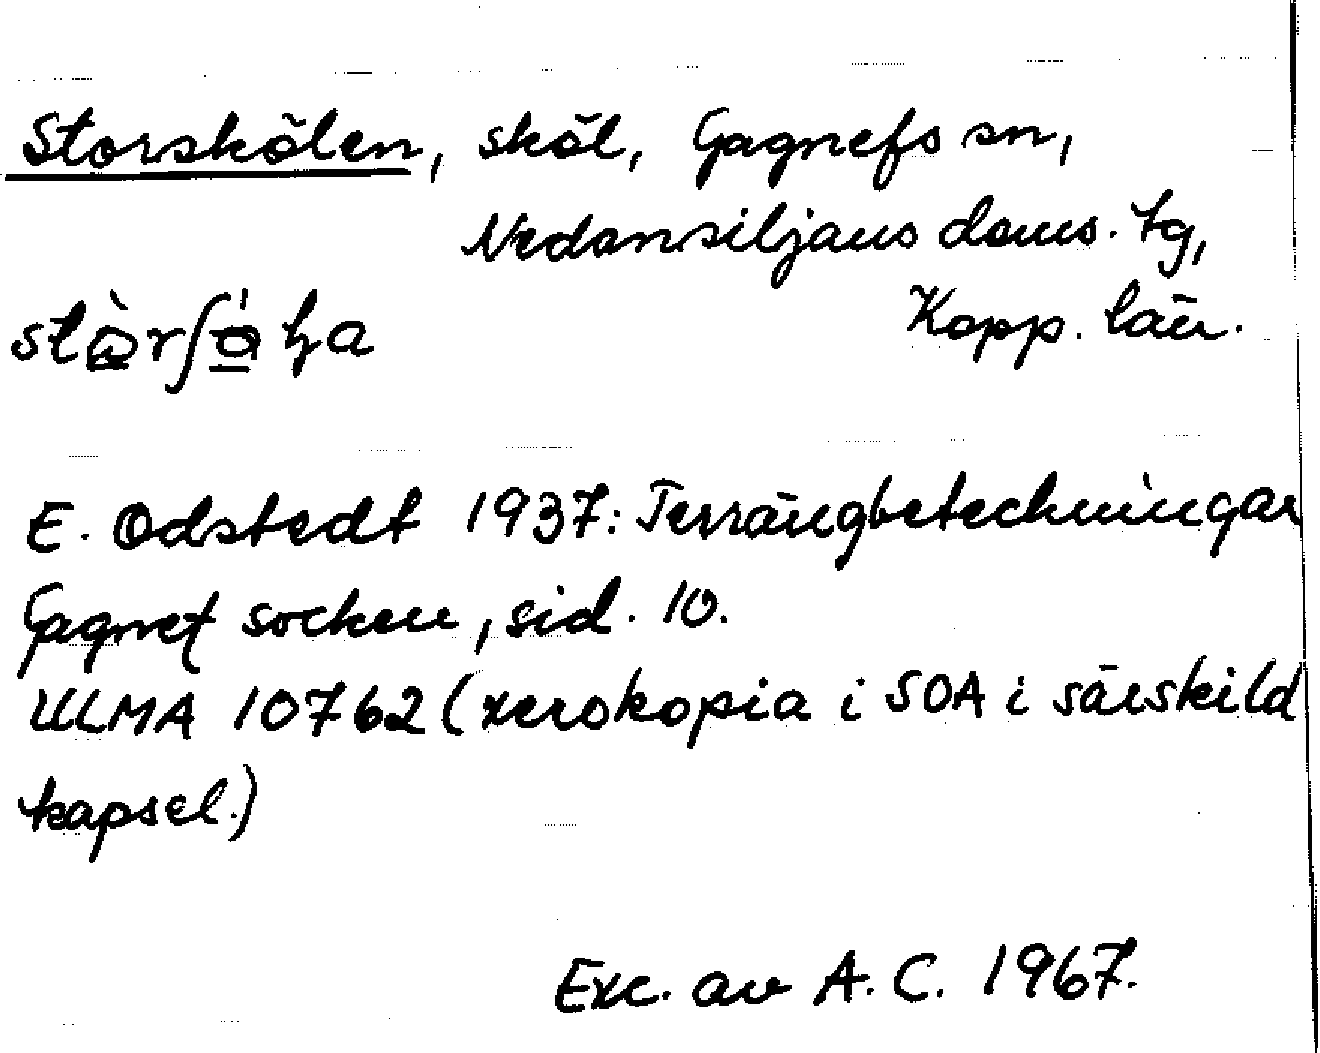 Storskölen, sköl, Gagnefs sn,
Nedansiljans doms. tg,
Kopp. län.
E. Odstedt 1937: Terrängbeteckningar
Gagnef socken, sid. 10.
ULMA 10762 (xerokopia i SOA i särskild
kapsel.)
Exc. av A. C. 1967.